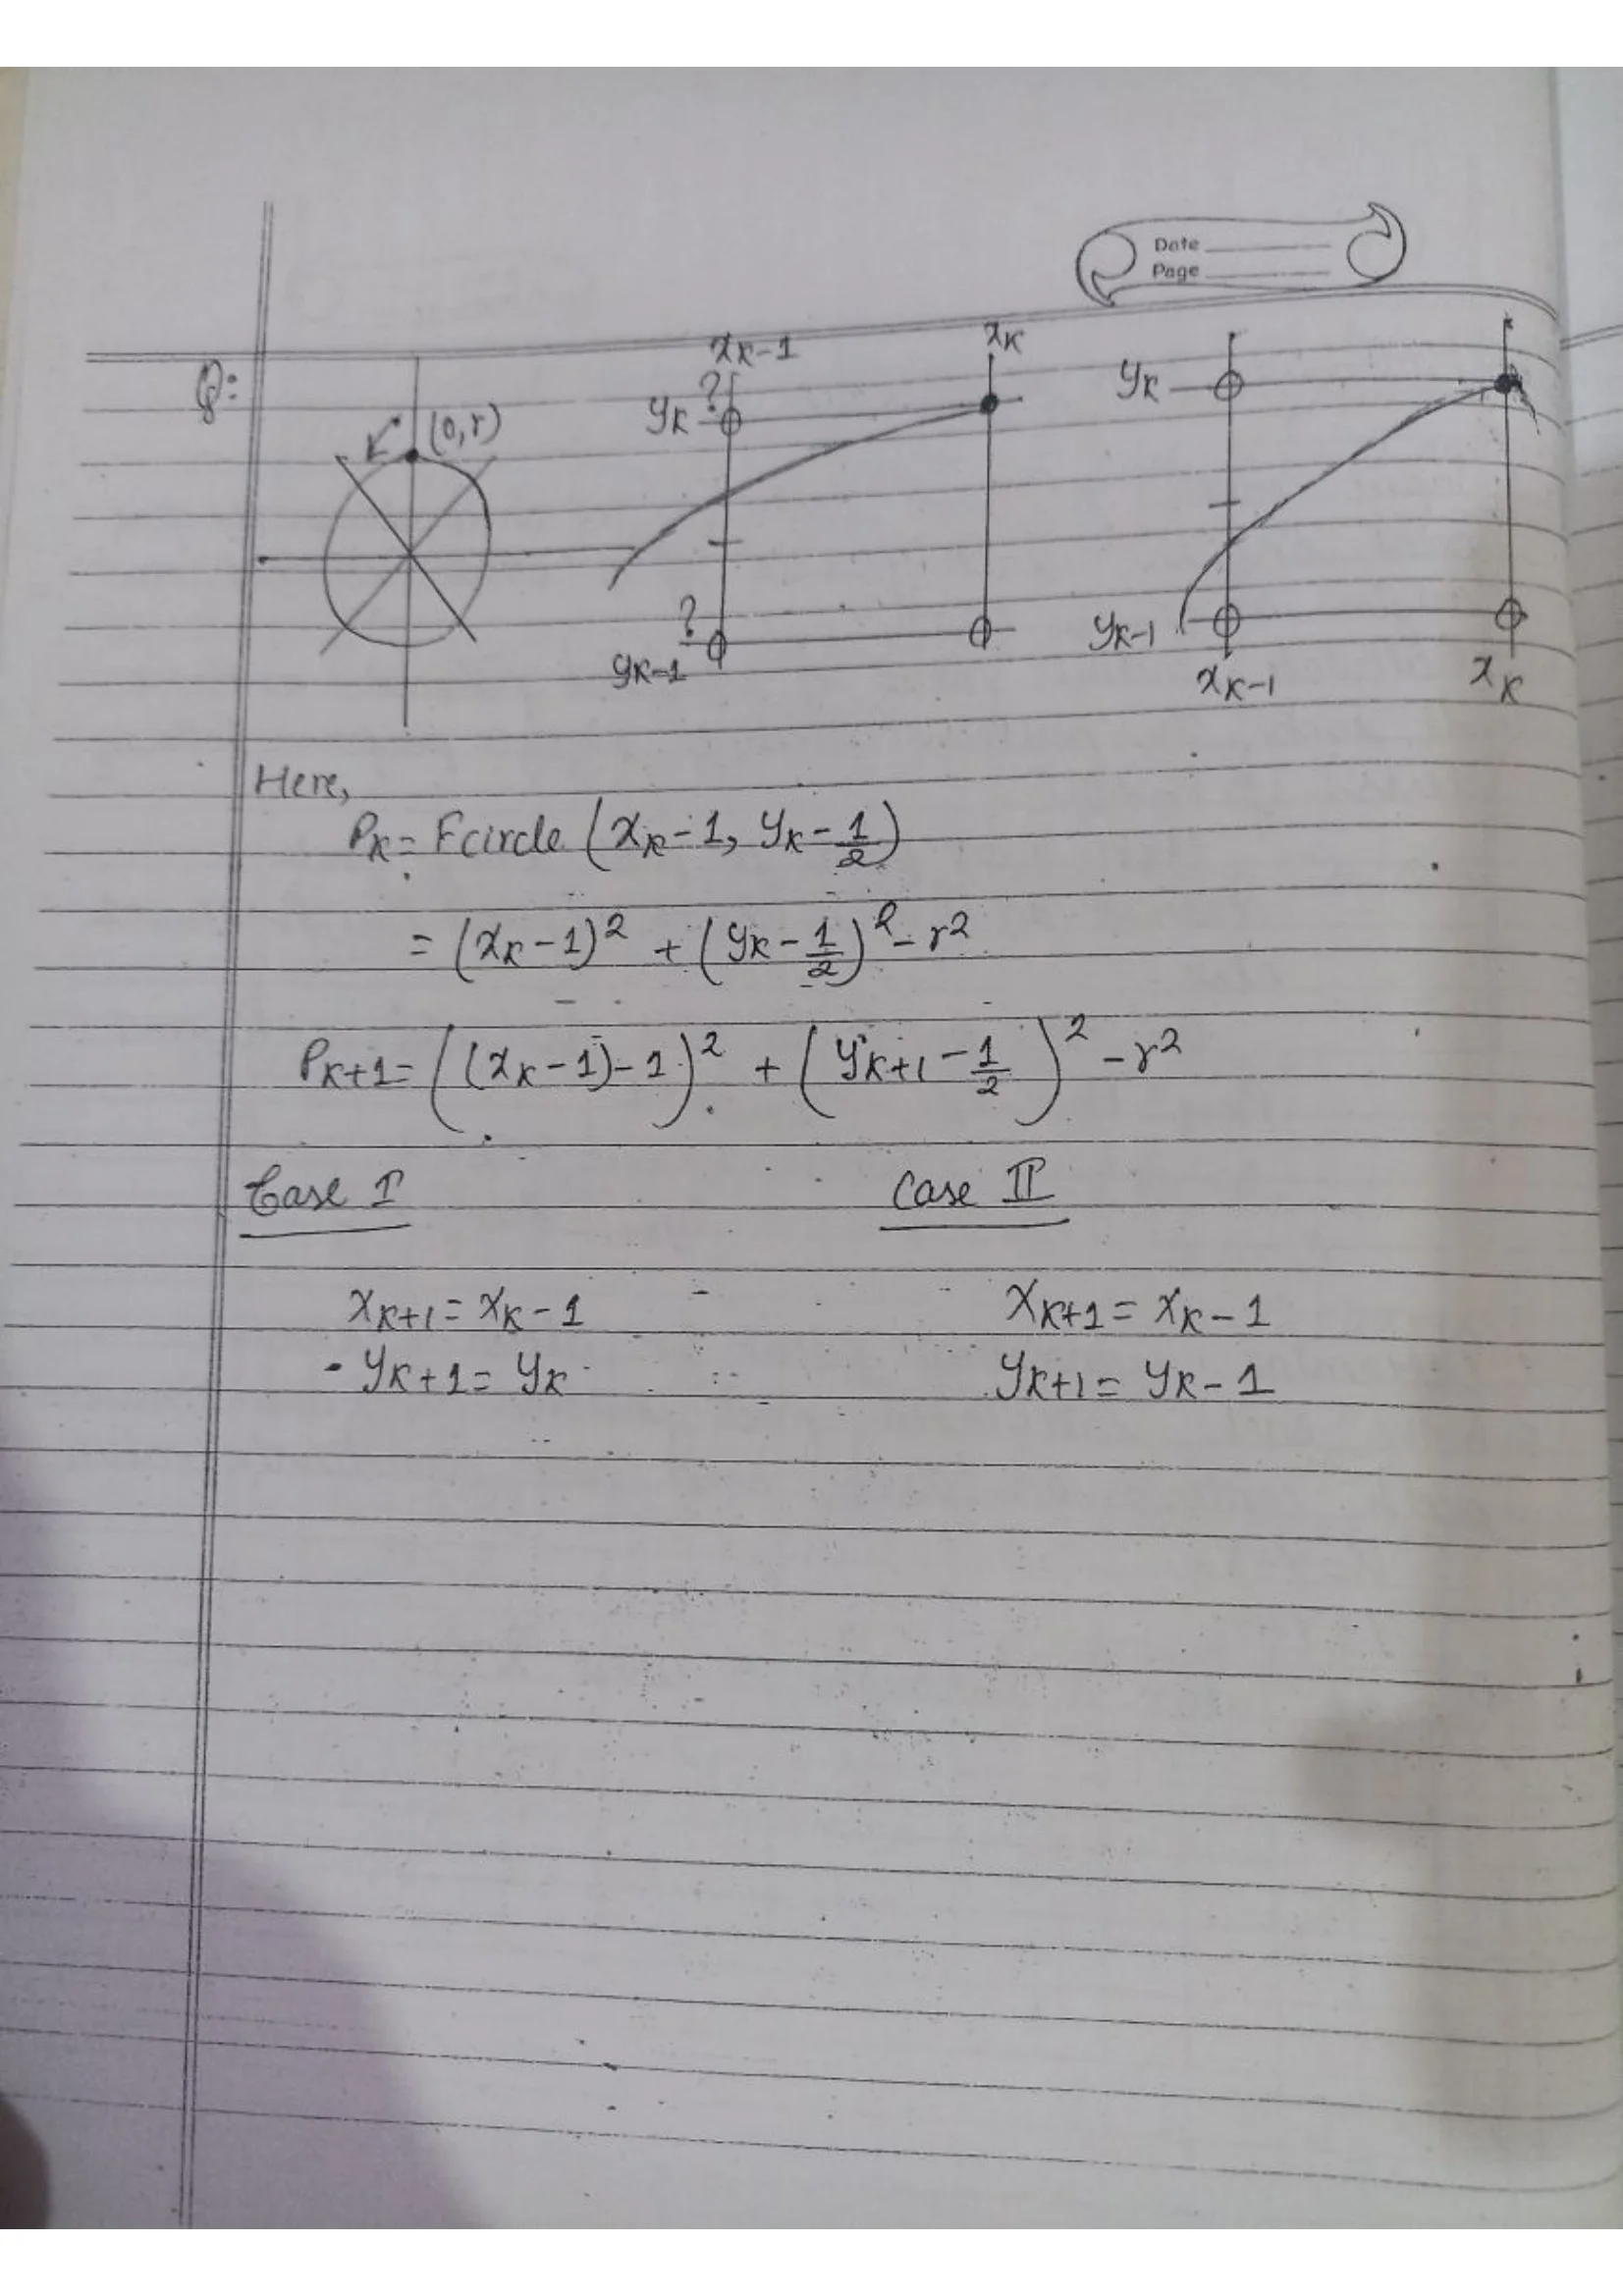 Date
Page
Q:
(0,r)
xK-1
xK
?
yK
?
yK-1
yK
yK-1
xK-1
xK
Here,
PK = Fcircle (xK-1, yK-1/2)
= (xK-1)² + (yK-1/2)² - r²
PK+1 = ((xK-1)-1)² + (yK+1-1/2)² - r²
Case I
Case II
xK+1 = xK-1
xK+1 = xK-1
yK+1 = yK
yK+1 = yK-1